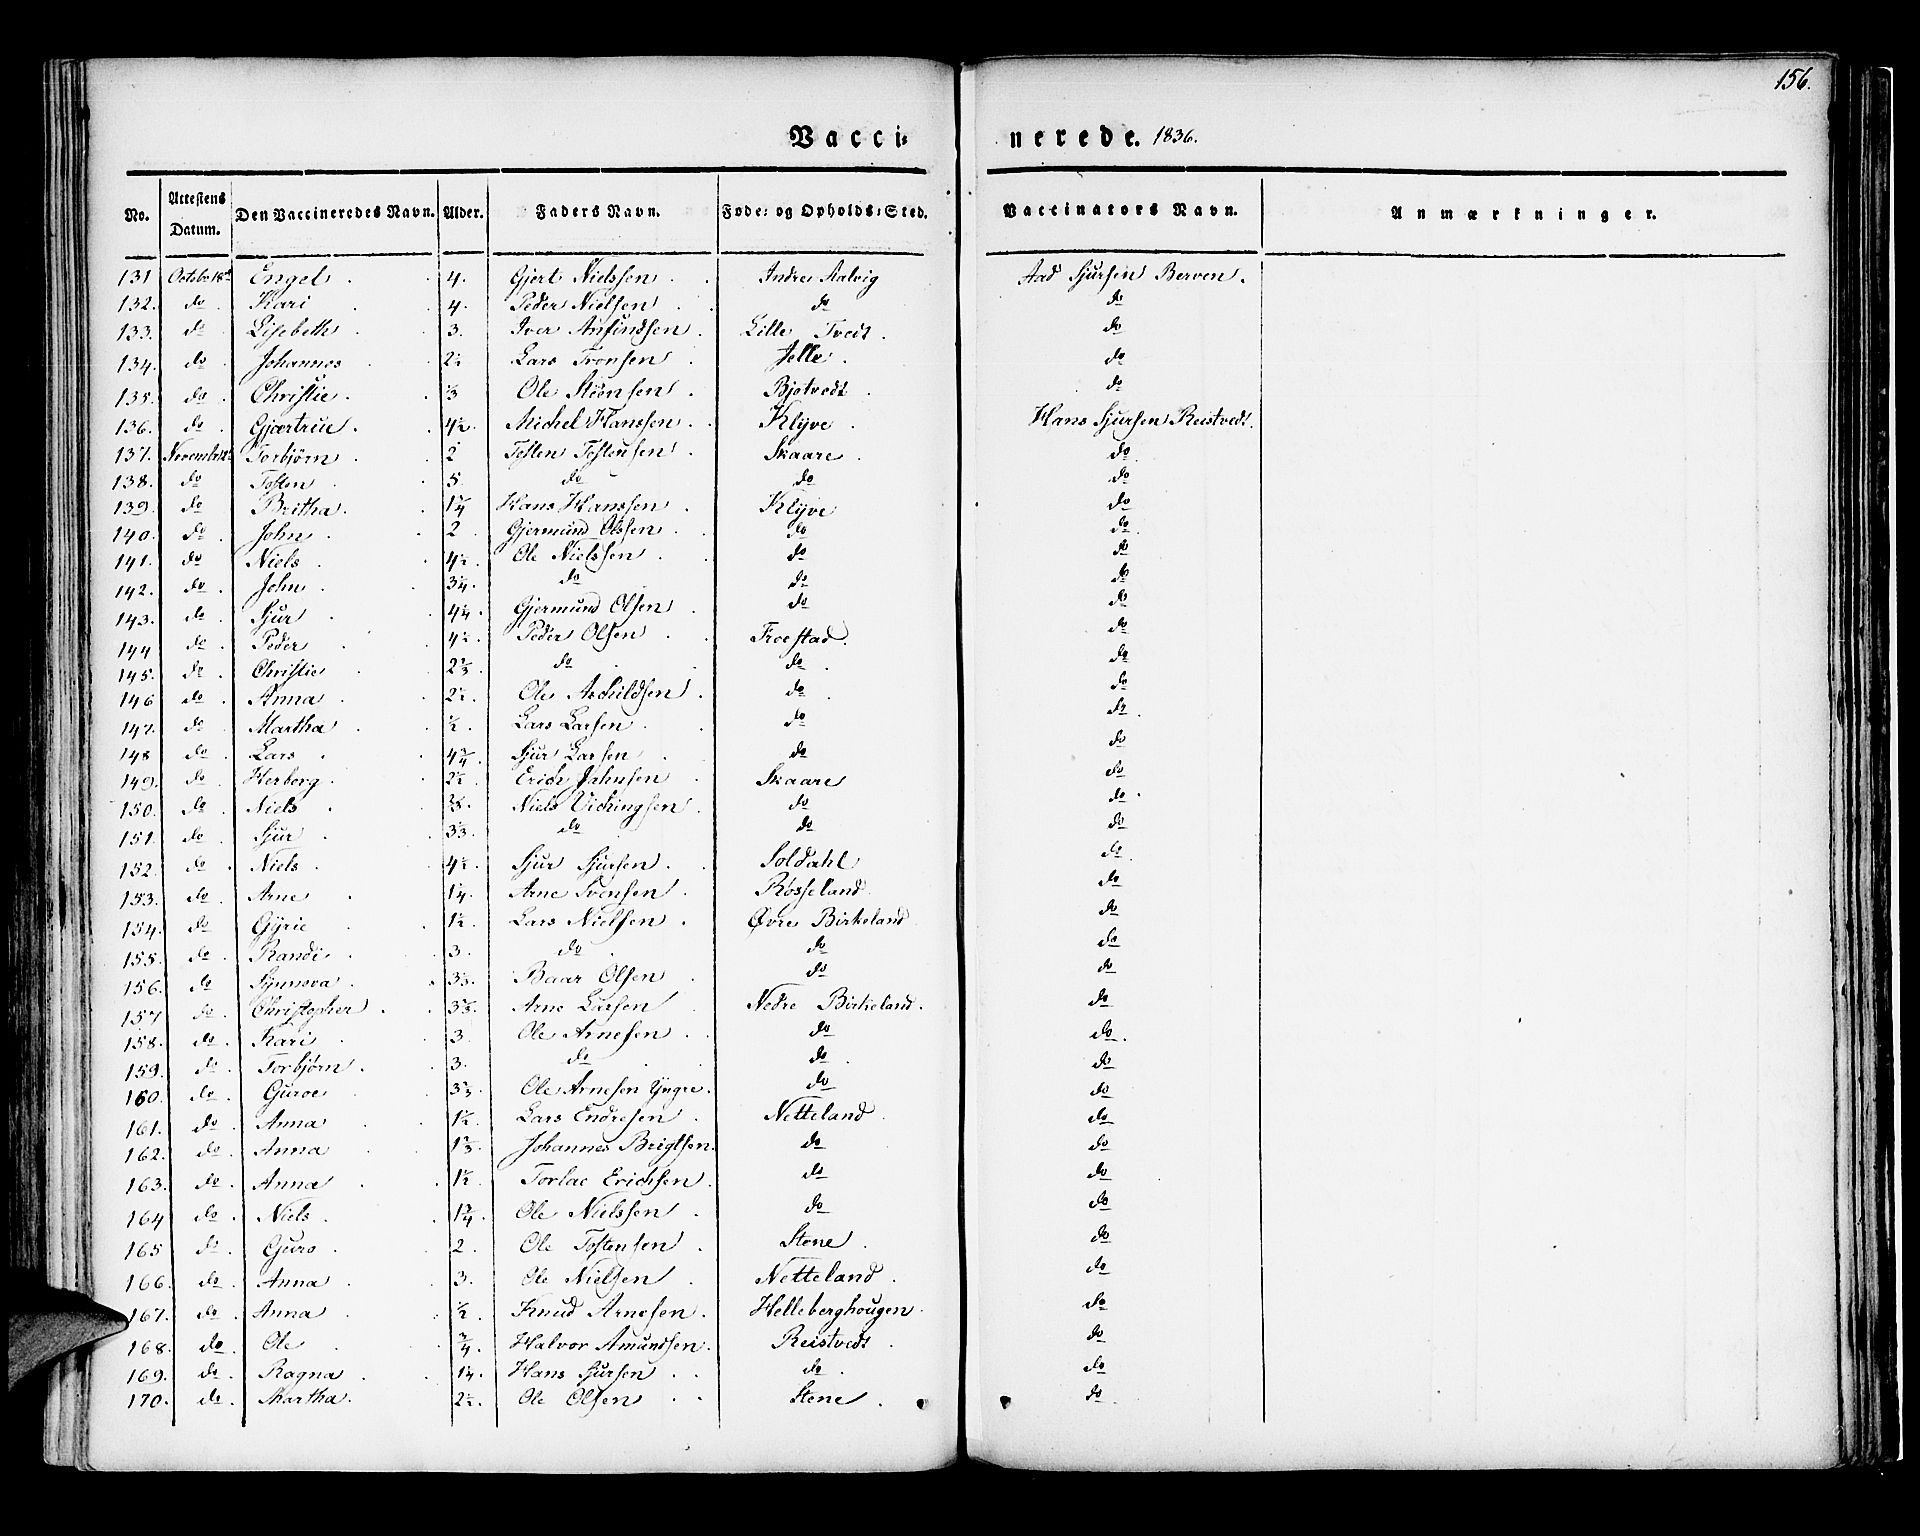 156.
Vacci- nerede. 1836.
No. Attestens Datum. Den Vaccineredes Navn. Alder. Faders Navn. Føde- og Opholds-Sted. Vaccinators Navn. Anmærkninger.
131 Octobr 18de Engel 4. Gjert Nielssen Indre Aalvig Aad Sjursen Berven.
132. do Kari 4. Peder Nielsen do do
133. do Lisebeth 3. Iver Anfindsen Lille Tvedt do
134. do Johannes 2½ Lars Tronsen Jelle do
135. do Christie ⅓ Ole Steensen Bjotvedt do
136. do Gjærtrue 4½. Michel Hanssen Klyve Hans Sjursen Reistvedt.
137. Torbjørn 2 Tosten Tostensen Skaare do
138. do Tosten 5 do do do
139. do Britha 1¼ Hans Hanssen Klyve do
140. do John 2 Gjermund Olssen do do
141. do Niels 4½ Ole Nielssen do do
142. do John 3¼ do do do
143. do Sjur 4¼ Gjermund Olsen do do
144 do Peder 4½. Peder Olsen Troestad. do
145. do Christie 2⅔ do do do
146 do Anna 2½ Ole Aschildsen do do
147. do Martha ½ Lars Larsen do do
148 do Lars 4¾ Sjur Larsen do do
149. do Herborg 2½ Erich Johnsen Skaare do
150. do Niels Niels Vichingsen do do
151. do Sjur 3⅓ do do do
152. do Niels 4½ Sjur Sjursen Soldahl do
153. do Arne 1¼ Arne Svensen Rosseland do
154. do Gyrie 1½ Lars Nielsen Øvre Birkeland do
155. do Randi 3. do do do
156. do Synneva 3⅓ Baar Olsen do do
157 do Christopher Arne Larsen Nedre Birkeland. do
158. do Kari 3 Ole Arnesen do do
159. do Torbjørn 3. do do do
160. do Guroe 3⅔ Ole Arnesen Yngre. do do
161. do Anna 1½ Lars Endresen Netteland do
162. do Anna 1⅔ Johannes Brigtsen do do
163. do Anna 1½ Torlac Erichsen do do
164 do Niels 1¾ Ole Nielssen do do
165 do Guro 2. Ole Tostensen Stene do
166. do Anna 3. Ole Nielsen Netteland do
167. do Anna ½ Knud Arnesen Helleberghougen do
168. do Ole ¾ Halvor Amundsen. Reistvedt do
169. do Ragna 1¼ Hans Sjursen do do
170. do Martha 2½ Ole Olsen Stene do